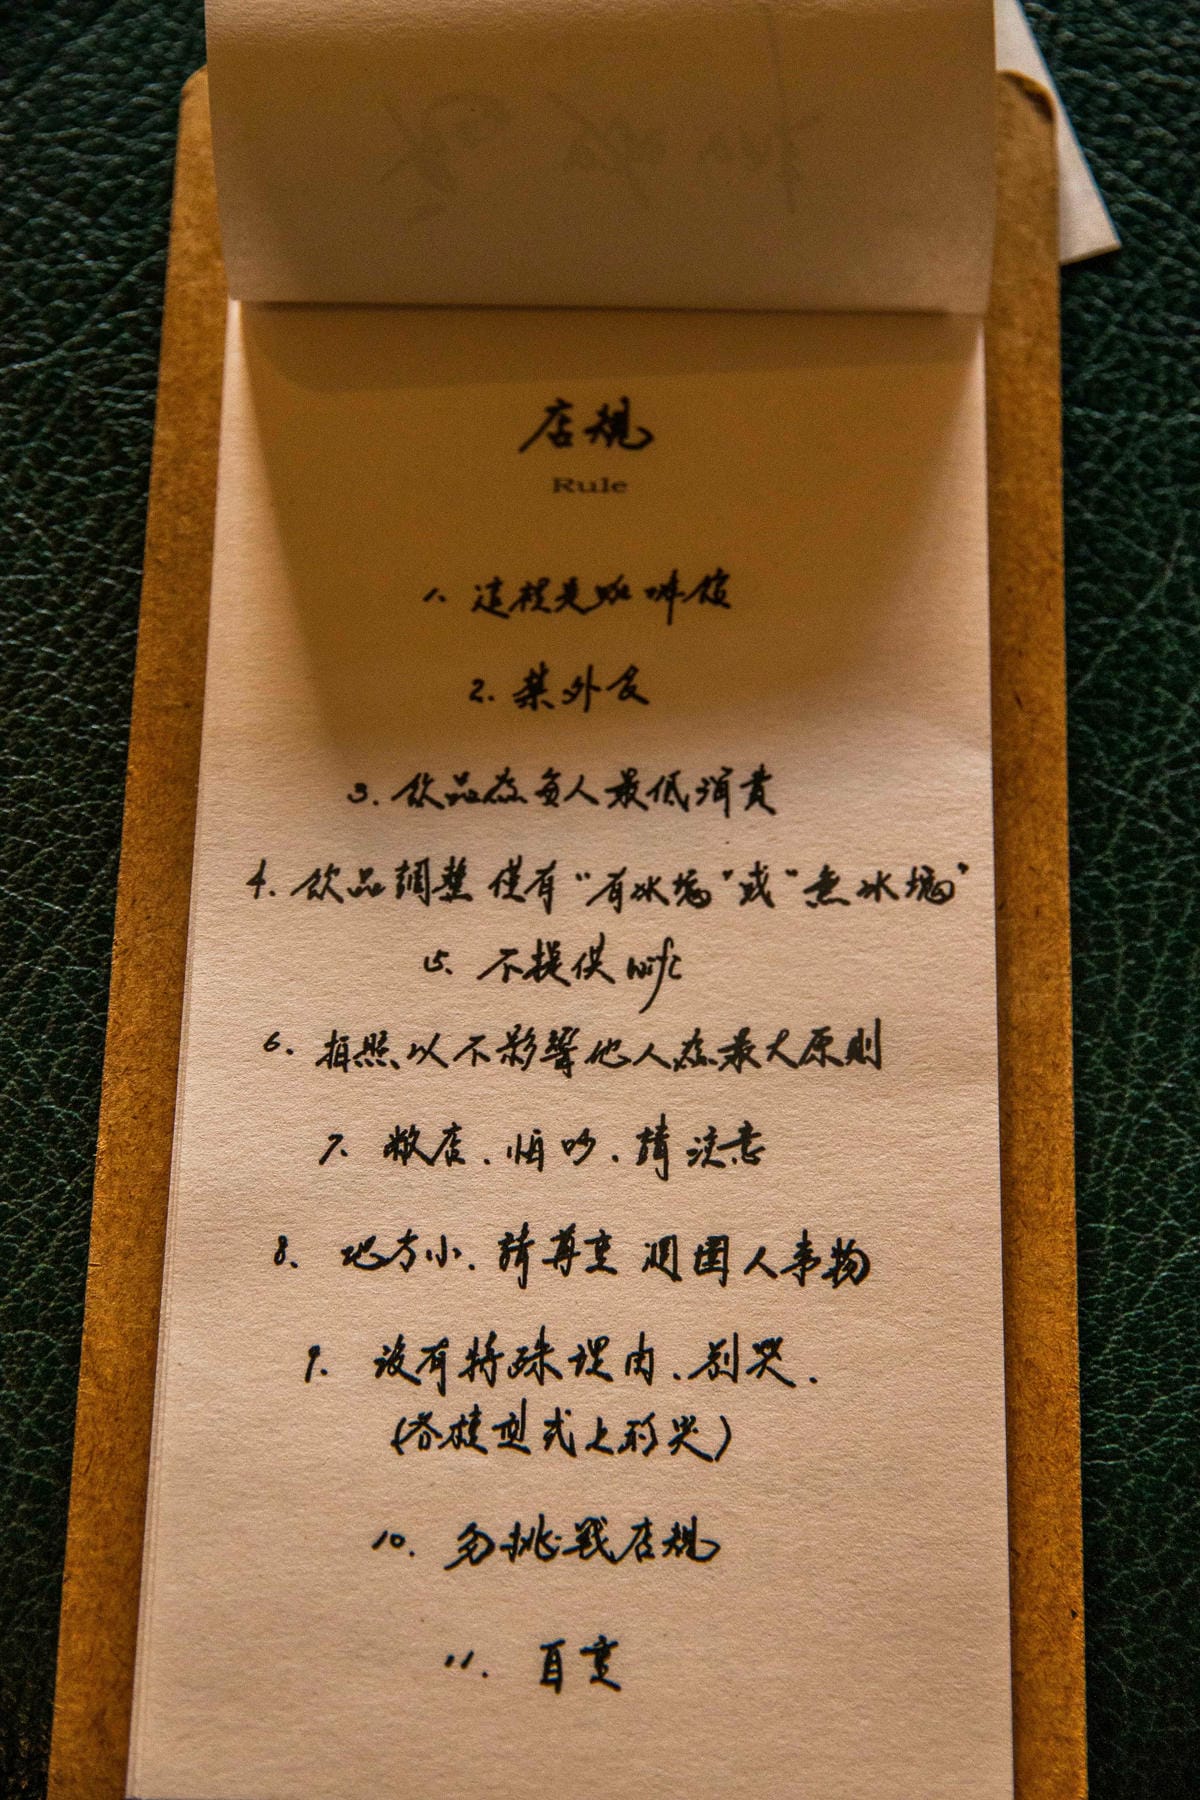 店規
Rule
1. 這裡是咖啡館
2. 禁外食
3. 飲品為每人最低消費
4. 飲品調整僅有“有冰塊”或“無冰塊”
5. 不提供wifi
6. 拍照以不影響他人為最大原則
7. 敝店、怕吵、請注意
8. 地方小、請尊重周圍人事物
9. 沒有特殊理由、別哭.
(各種型式上的哭)
10. 勿挑戰店規
11. 自重